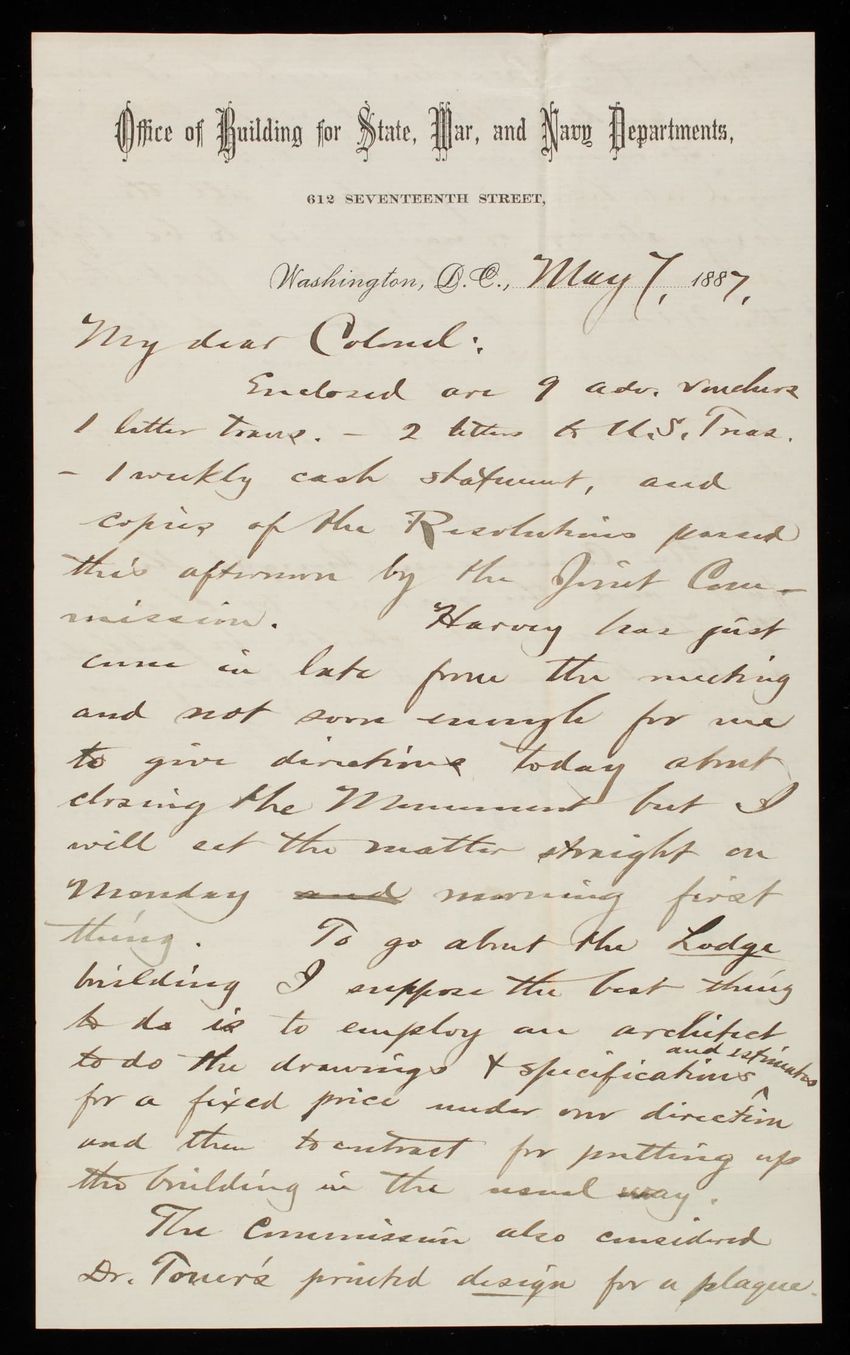 Office of Building for State, War, and Navy Departments,
612 SEVENTEENTH STREET,
Washington, D.C., May 7, 1887.
My dear Colonel:
Enclosed are 9 adv. vouchers
1 letter trans. - 2 letters to U.S. Treas.
- 1 weekly cash statement, and
copies of the Resolutions passed
this afternoon by the Joint Com-
mission. Harvey has just
come in late from the meeting
and not soon enough for me
to give directions today about
closing the Monument but I
will set the matter straight on
Monday and morning first
thing. To go about the Lodge
building I suppose the best thing
to do is to employ an architect
to do the drawings & specifications
and estimates
for a fixed price under our direction
and then to contract for putting up
the building in the usual way.
The Commission also considered
Dr. Toner's printed design for a plaque.